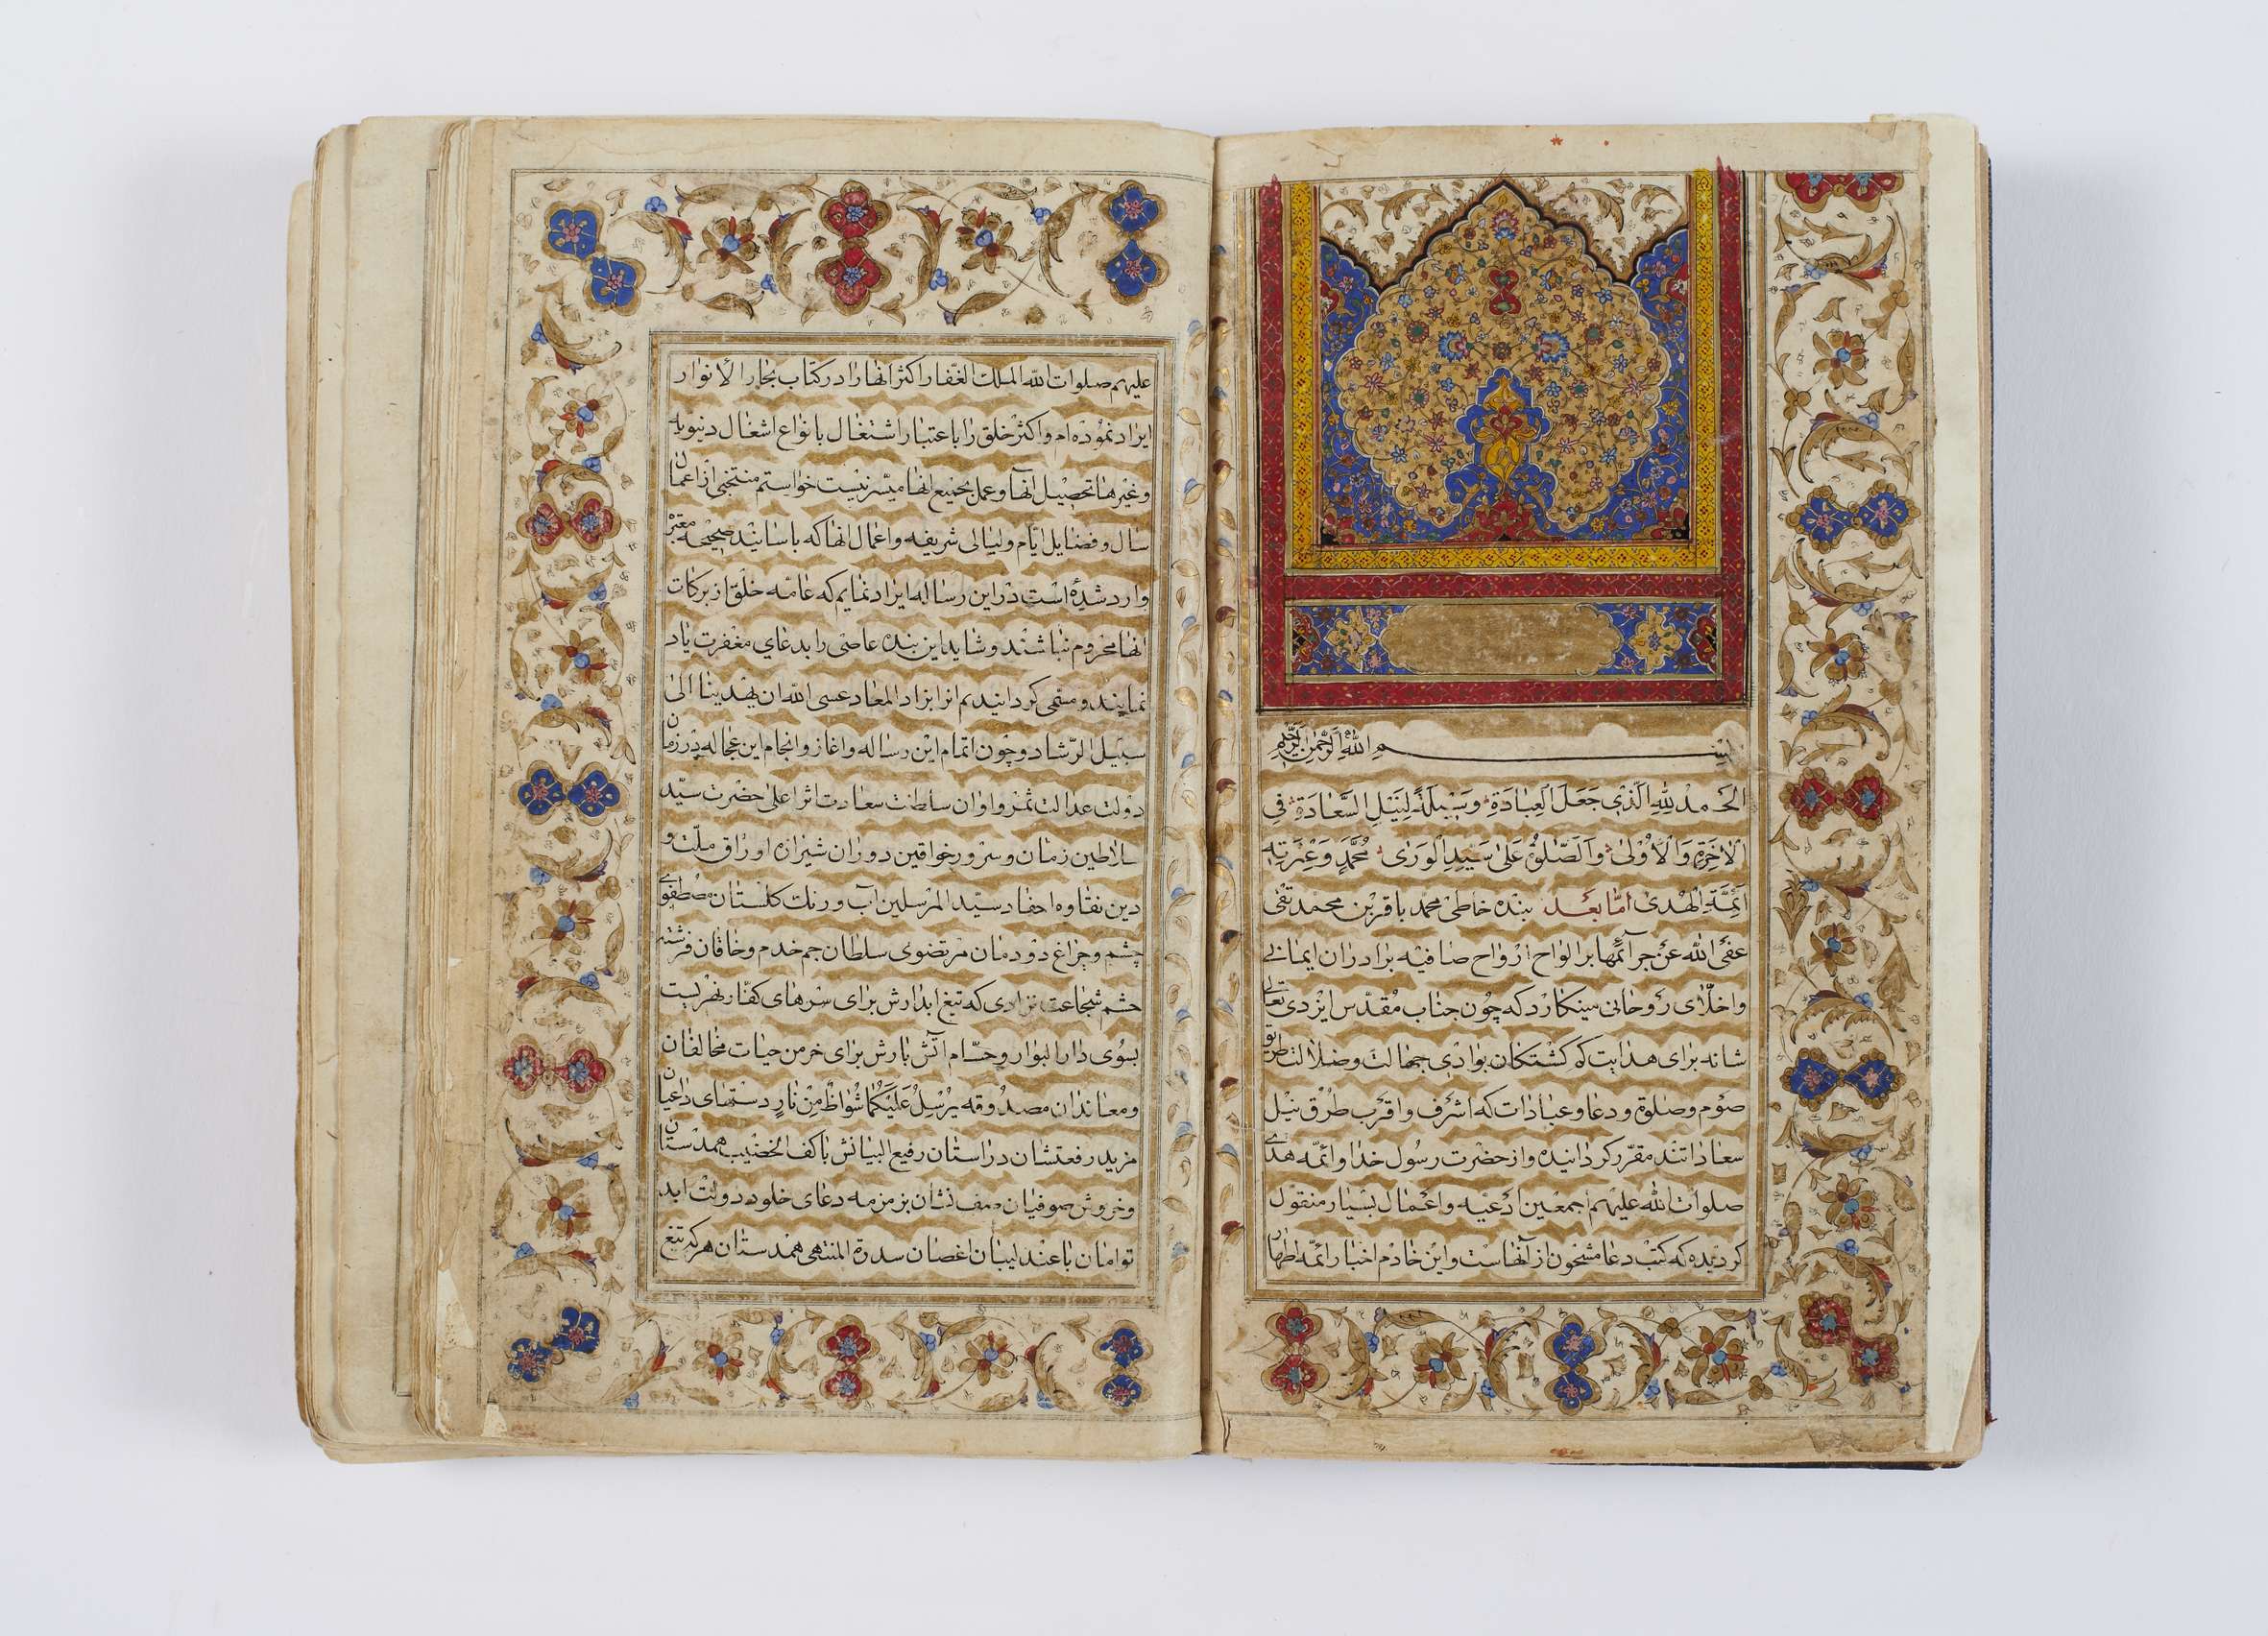 بسم الله الرحمن الرحیم
الحَمدُ لِلّهِ الَّذی جَعَلَ العِبادَةَ وَسیلَةً لِنَیلِ السَّعادَةِ فِی
الاخِرَةِ وَالاُولیٰ وَالصَّلوٰةُ عَلیٰ سَیِّدِ الوَریٰ مُحَمَّدٍ وَعِترَتِهِ
اَئِمَّةِ الهُدیٰ امّا بعَد بنده خاطی محمّد باقر بن محمد تقی
عفی الله عن جرآئمها بر الواح ارواح صافیه برادران ایمانی
و اخلّای روحانی مینکارد که چون جناب مقدّس ایزدی تعالی
شانه برای هدایت کم کشتکان بوادی جهالت و ضلالت طریق
صوم و صلوة و دعا و عبادات که اشرف و اقرب طرق نیل
سعاداتند مقرّر کردانیده و از حضرت رسول خدا و ائمّه هدی
صلوات الله علیهم اجمعین ادعیه و اعمال بسیار منقول
کردیده که کتب دعا مشحون از آنهاست و این خادم اخبار ائمّه اطهار
علیهم صلوات الله الملک الغفار اکثر انها را در کتاب بحار الأنوار
ایراد نموده ام و اکثر خلق را باعتبار اشتغال بانواع اشغال دنیویه
و غیرها تحصیل آنها و عمل بجمیع انها میسّر نیست خواستم منتخبی از اعمال
سال و فضایل ایّام و لیالی شریفه و اعمال انها که باسانید صحیحه معتبره
وارد شده است در این رساله ایراد نمایم که عامّه خلق از برکات
انها محروم نباشند و شاید این بنده عاصی را بدعای مغفرت یاد
نمایند و مسمّی کردانیدم انرا بزاد المعاد عسی الله ان یهدینا الی
سبیل الرّشاد و چون اتمام این رساله و اغاز و انجام این عجاله در زمان
دولت عدالت ثمر و اوان سلطنت سعادت اثر اعلی حضرت سیّد
سلاطین زمان و سرور خواقین دوران شیرازه اوراق ملّت و
دین نقاوه احفاد سیّد المرسلین آب و رنک کلستان مصطفوی
چشم و چراغ دودمان مرتضوی سلطان جم خدم و خاقان فرشته
حشم شجاعت نژادی که تیغ ابدارش برای سرهای کفّار نهریست
بسوی دار البوار و حسام آتش بارش برای خرمن حیات مخالفان
و معاندان مصدوقه یُرسَلُ عَلَیکُما شُواظٌ مِن نارٍ دستهای داعیان
مزید رفعتشان در استان رفیع البنیانش با کف الخضیب همدستان
و خروش صوفیان صف نشان بزمزمه دعای خلود دولت ابد
توامان با عندلیبان اغصان سدرة المنتهی همدستان هر که تیغ